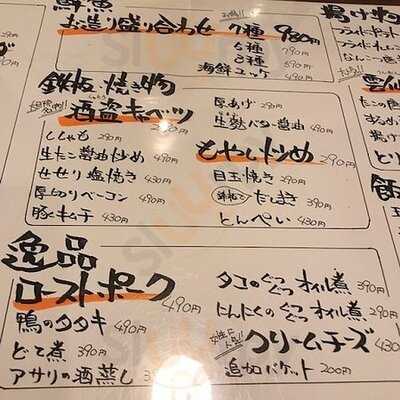 鮮魚
お造り盛り合わせ 7種 980円
5種 790円
3種 590円
海鮮ユッケ 490円
鉄板・焼き物
酒盗キャベツ 290円
ししゃも 290円
生たこ醤油炒め 490円
せせり塩焼き 430円
厚切りベーコン 490円
豚キムチ 430円
厚あげ 290円
生麩バター醤油 490円
もやし炒め 290円
目玉焼き 290円
だしまき 390円
とんぺい 430円
逸品
ローストポーク 490円
鴨のタタキ 490円
どて煮 390円
アサリの酒蒸し
タコのぐつぐつオイル煮 390円
にんにくのぐつぐつオイル煮 390円
クリームチーズ 430
追加バケット 200円
揚げ物
フライドポテト
なんこつ